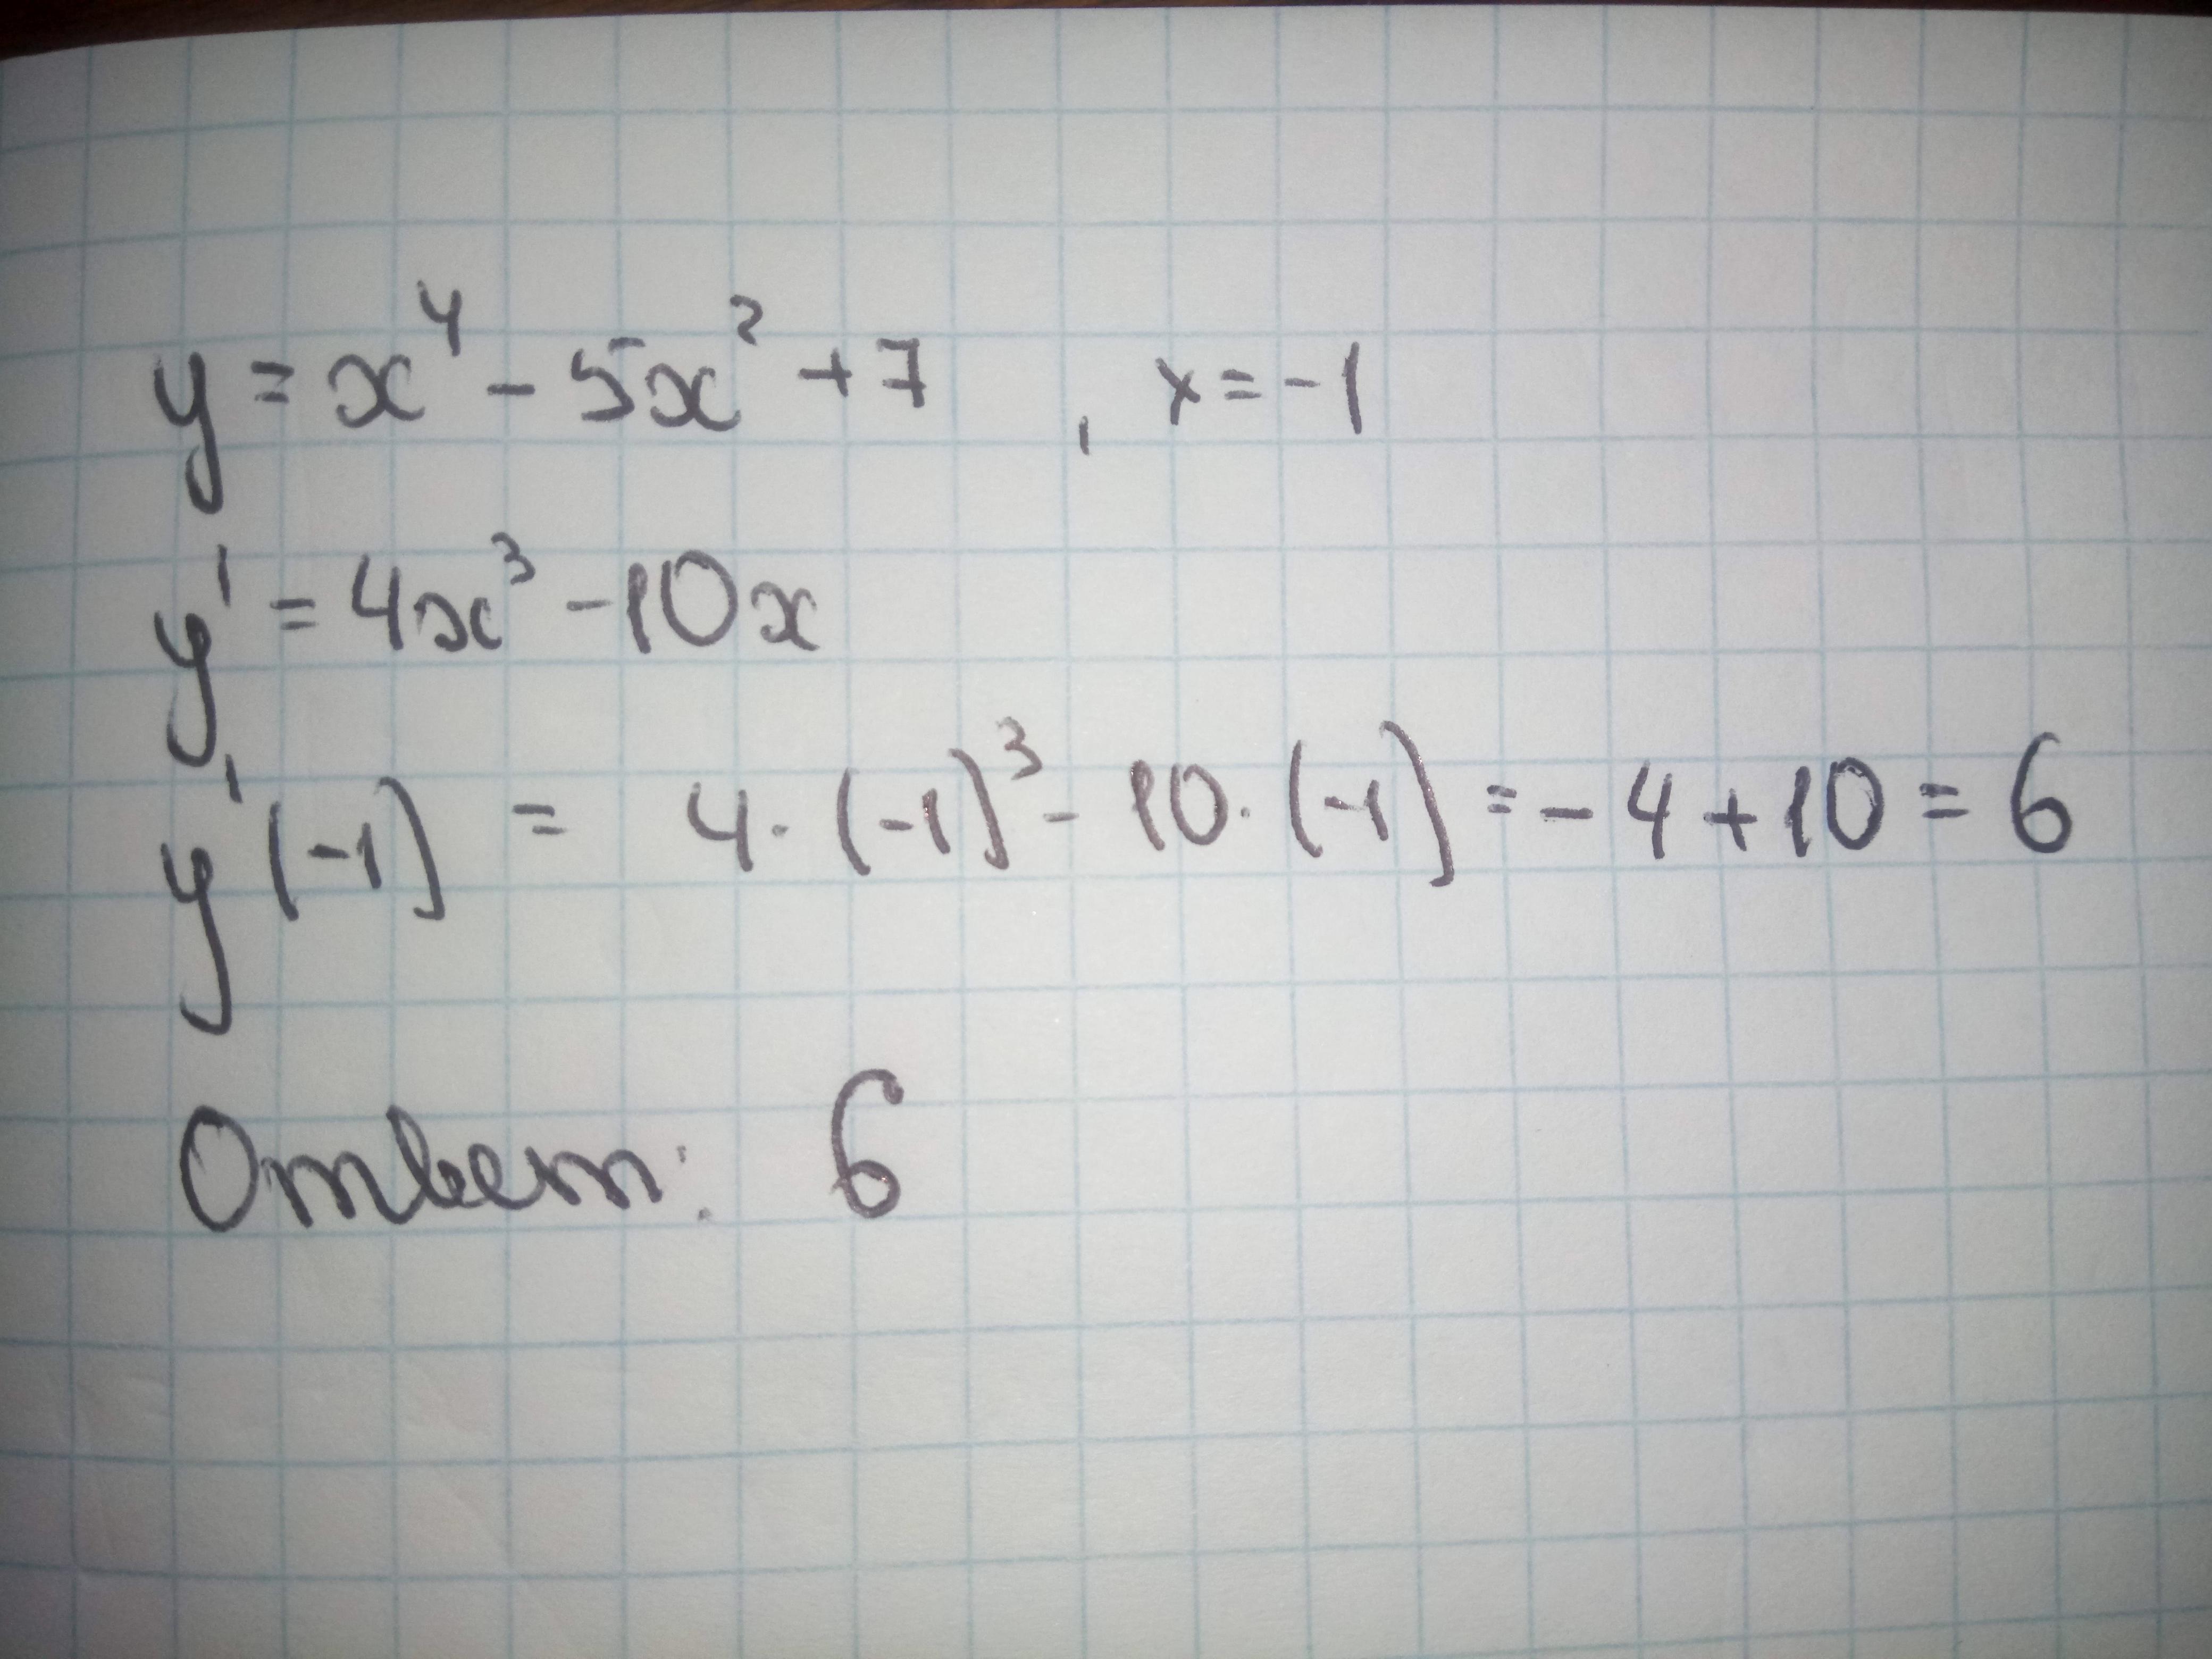 y = x⁴ - 5x² + 7 , x = -1
y' = 4x³ - 10x
y'(-1) = 4·(-1)³ - 10·(-1) = -4 + 10 = 6
Ответ: 6